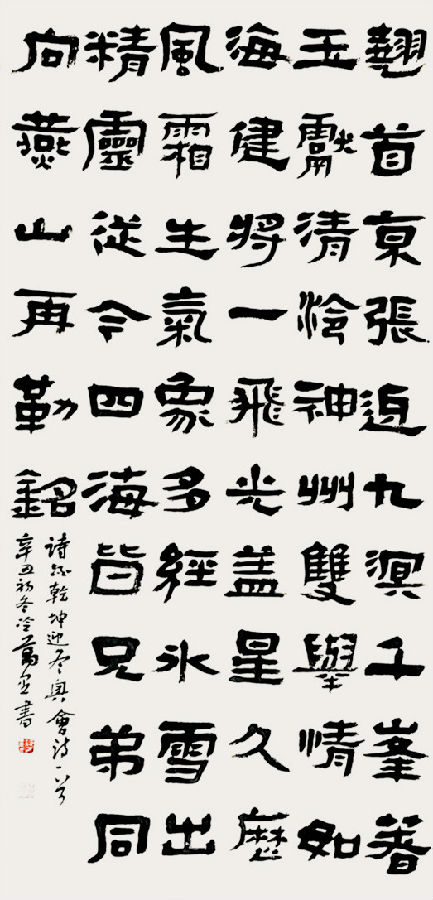 翹首京張迎九溟千峯著
玉獻清泠神州雙舉情如
海健將一飛光盖星久歷
風霜生氣象多經冰雪出
精靈從今四海皆兄弟同
向燕山再勒銘
詩乾坤迎冬奧會詩一首
辛丑初冬書